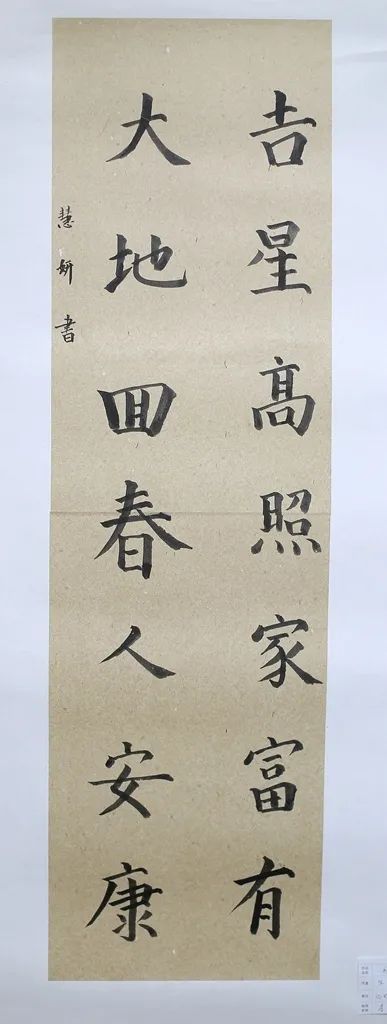 吉星高照家富有
大地回春人安康
慧妍書